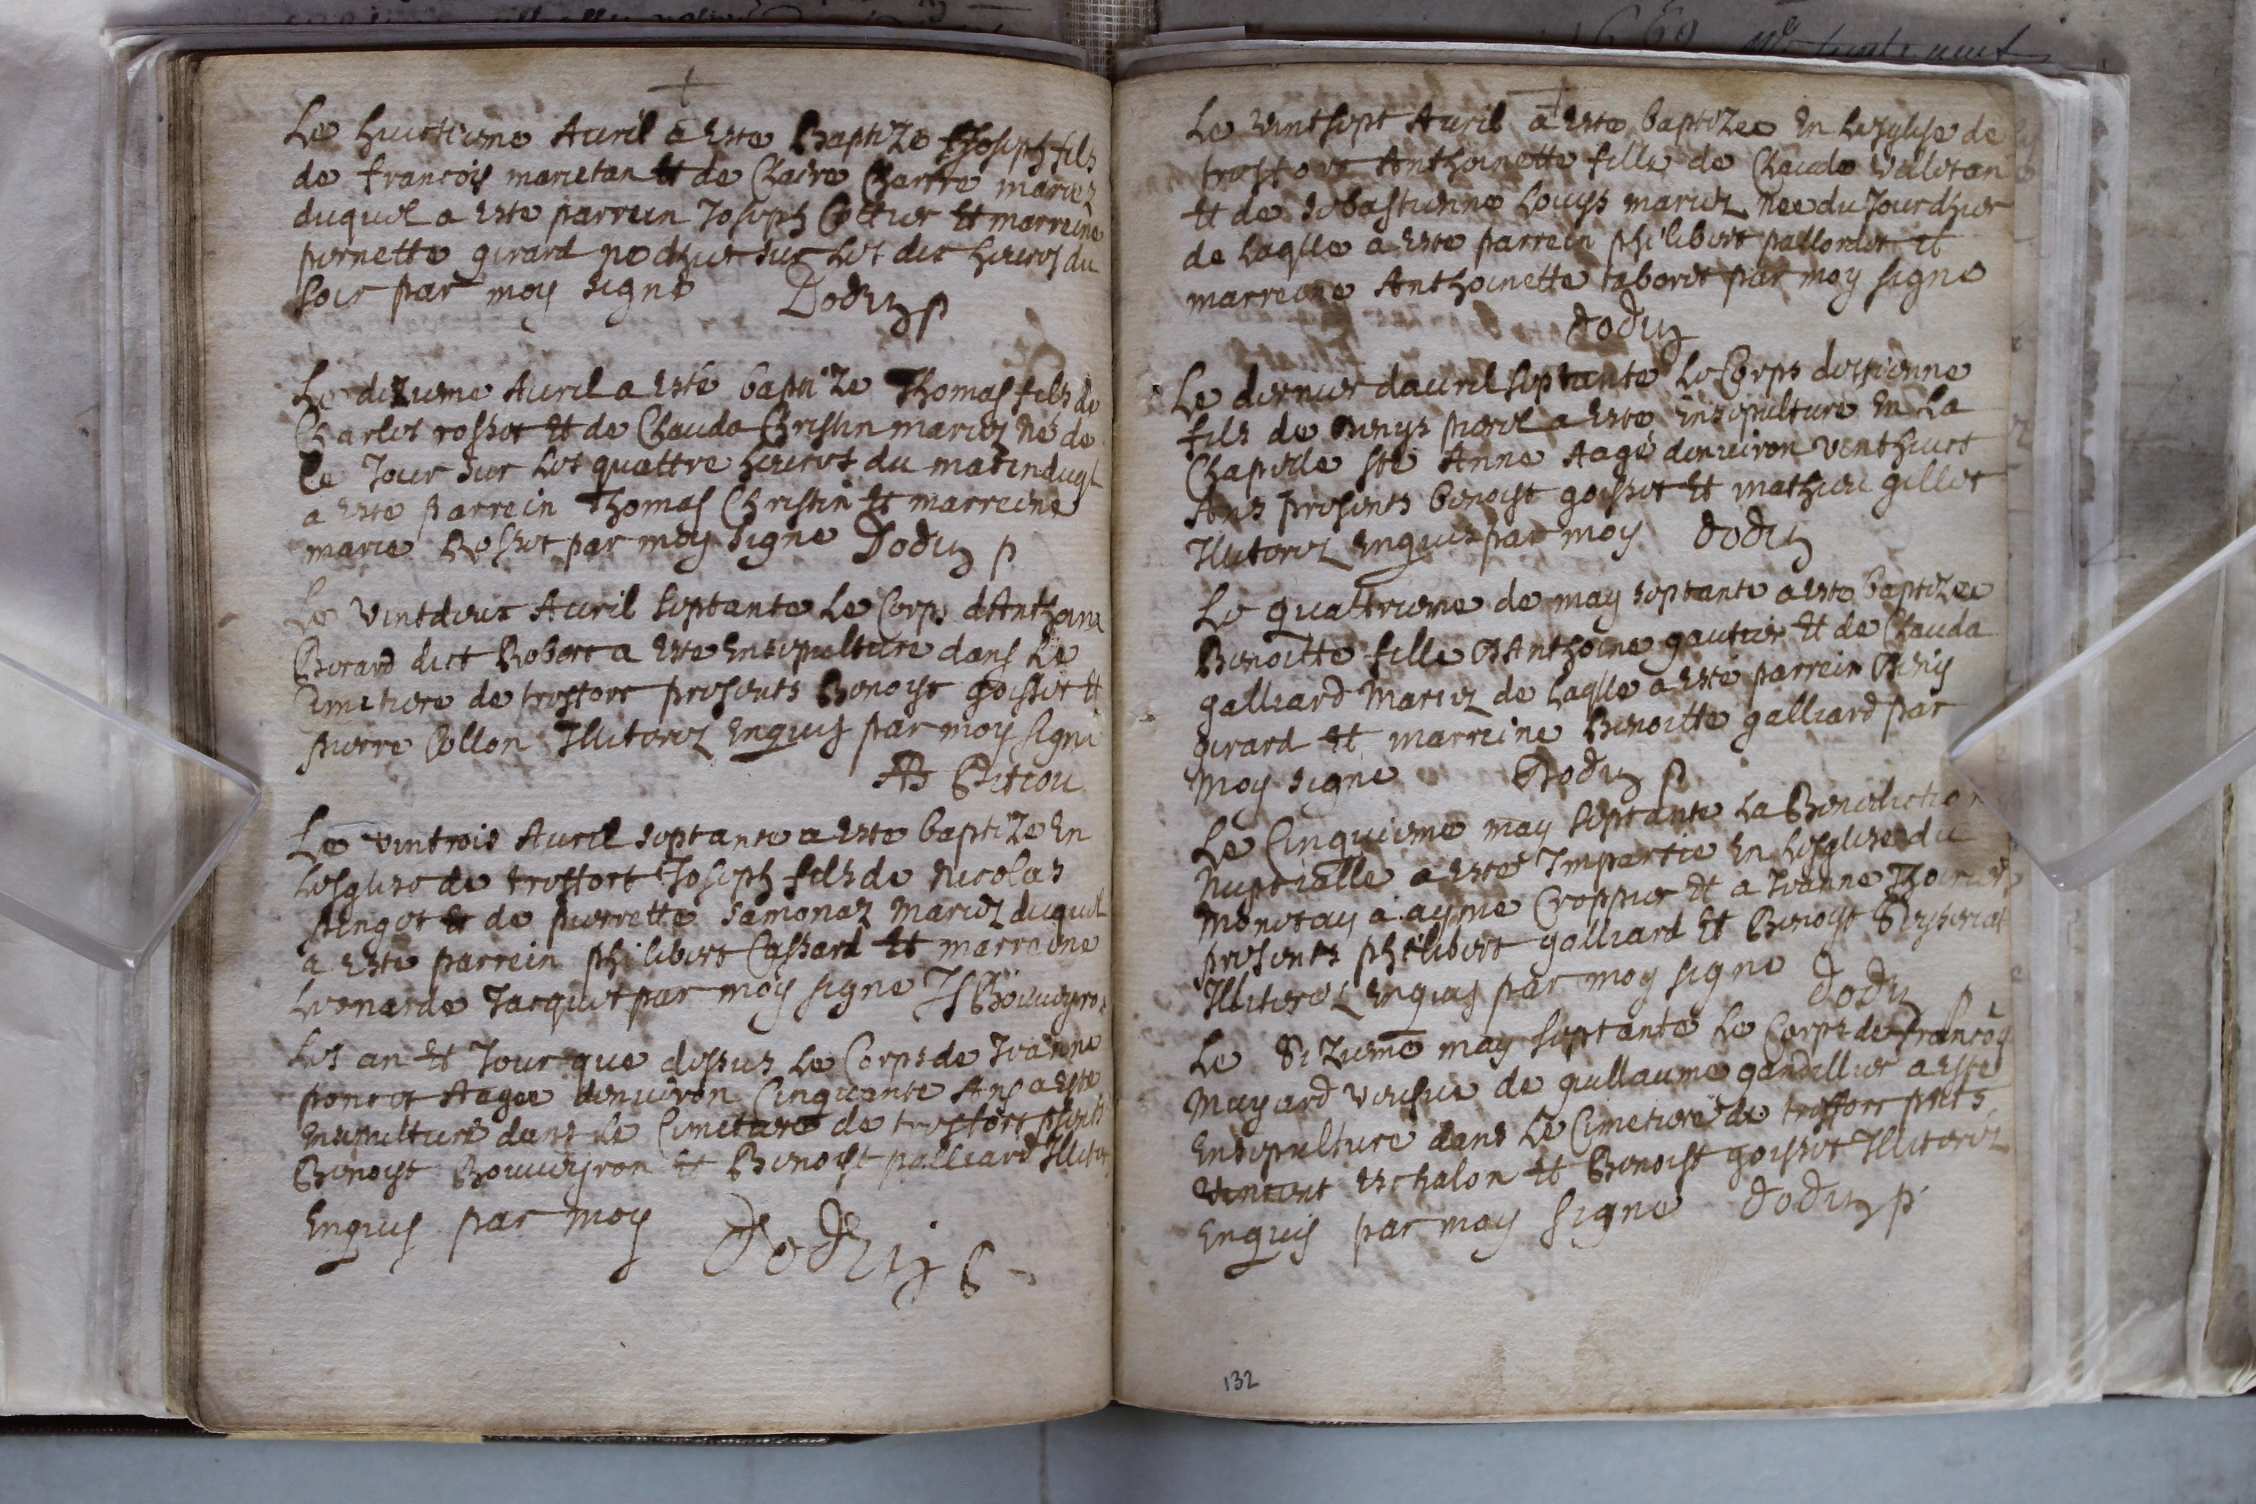 Le huictieme Auril a este Baptize Joseph filz
de françois marietan Et de Claire Chartre mariez
duquel a este parrein Joseph Cottier Et marreine
pernette girard ne dhier sur les dix heures du
soir par moy signé Dodin p
Le dizieme Auril a esté baptize Thomas filz de
Charles rosset Et de Clauda Christin mariez né de
ce Jour sur les quattre heures du matin duql
a este parrein Thomas Christin Et marreine
marie Rosset par moy signe Dodin p
Le vintdeux Auril septante Le Corps dAnthoine
Berard dict Robert a este Ensepulture dans Le
Cimetiere de treffort presents Benoist goisset Et
pierre Collon Illiterez Enquis par moy signe
Le vintrois Auril septante a este baptize En
Lesglise de treffort Joseph filz de Nicolas
pingot Et de pierrette Jamonaz mariez duquel
a este parrein philibert Cassard Et marreine
Leonarde Jacquet par moy signe Bouueyron
Les an Et Jour que dessus Le Corps de Jeanne
poncet Agee denuiron Cinquante Ans a este
Ensepulturé dans Le Cimetiere de treffort psents
Benoist Bouueyron Et Benoist palliard Illiter
Enquis par moy Dodin
Le vintsept Auril a este baptizee En Lesglise de
treffort Anthoinette fille de Claude Valetan
Et de sebastienne Louys mariez Nee du Jourdhier
de Laqlle a este parrein philibert pallordet Et
marreine Anthoinette taboret par moy signe
dodin
Le dernier dauril septante Le Corps destienne
filz de Denys morel a este Ensepulture En La
Chapelle Ste Anne Aagé denuiron vinthuict
Ans presents benoist goisset Et mathieu gillet
Illiterez Enquis par moy dodin
Le quattrieme de may septante a este baptizee
Benoitte fille dAnthoine gautier Et de Clauda
galliard Mariez de Laqlle a esté parrein Denis
girard Et marreine Benoitte galliard par
Moy signe Dodin p
Le Cinquieme may septante La Benediction
Nuptialle a este Impartie En Lesglise du
Monetay a ayme Croppier Et a Jeanne
presents philibert galliard Et Benoist
Illiterez Enquis par moy signe dodin p
Le Sizieme may septante Le Corps de françoise
Mayard vefue de guillaume gandillier a este
Ensepulture dans Le Cimetiere de treffort pnts
Vincent Eschalon Et Benoist goisset Illiterez
Enquis par moy signe dodin p
132